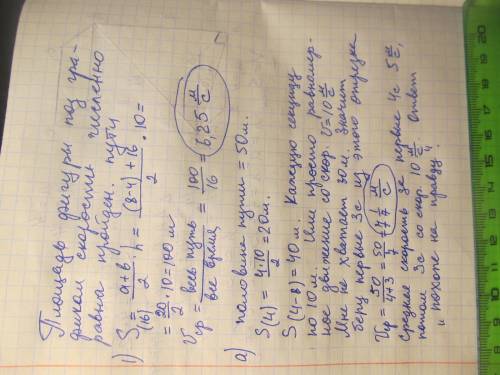 Площадь фигуры под гра-
фиком скорости численно
равна пройден. пути
1) S(16) = (a+b)/2 · h = ((8-4)+16)/2 · 10 =
= 20/2 · 10 = 100 м
Vср = весь путь / все время = 100/16 = 6,25 м/с
а) половина пути = 50 м.
S(4) = 4·10/2 = 20 м.
S(4-8) = 40 м. Каждую секунду
по 10 м. Или просто равномер-
ное движение со скор. V=10 м/с
Мне не хватает 30 м, значит
беру первые 3с из этого отрезка
Vср = 50/(4+3) = 50/7 = 7 1/7 м/с
Средняя скорость за первые 4с 5 м/с,
потом 3с со скор. 10 м/с, ответ
"похоже на правду."
15 16 17 18 19 20